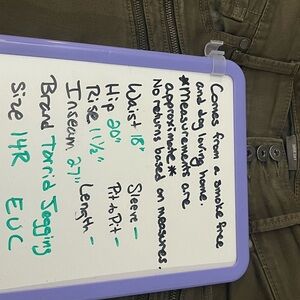 Comes from a smoke free
and dog loving home.
*Measurements are
approximate*
No returns based on measures.
Waist 18" Sleeve -
Hip 20" Pit to Pit -
Rise 11 1/2" Length -
Inseam 27"
Brand Torrid Jegging
Size 14R EUC